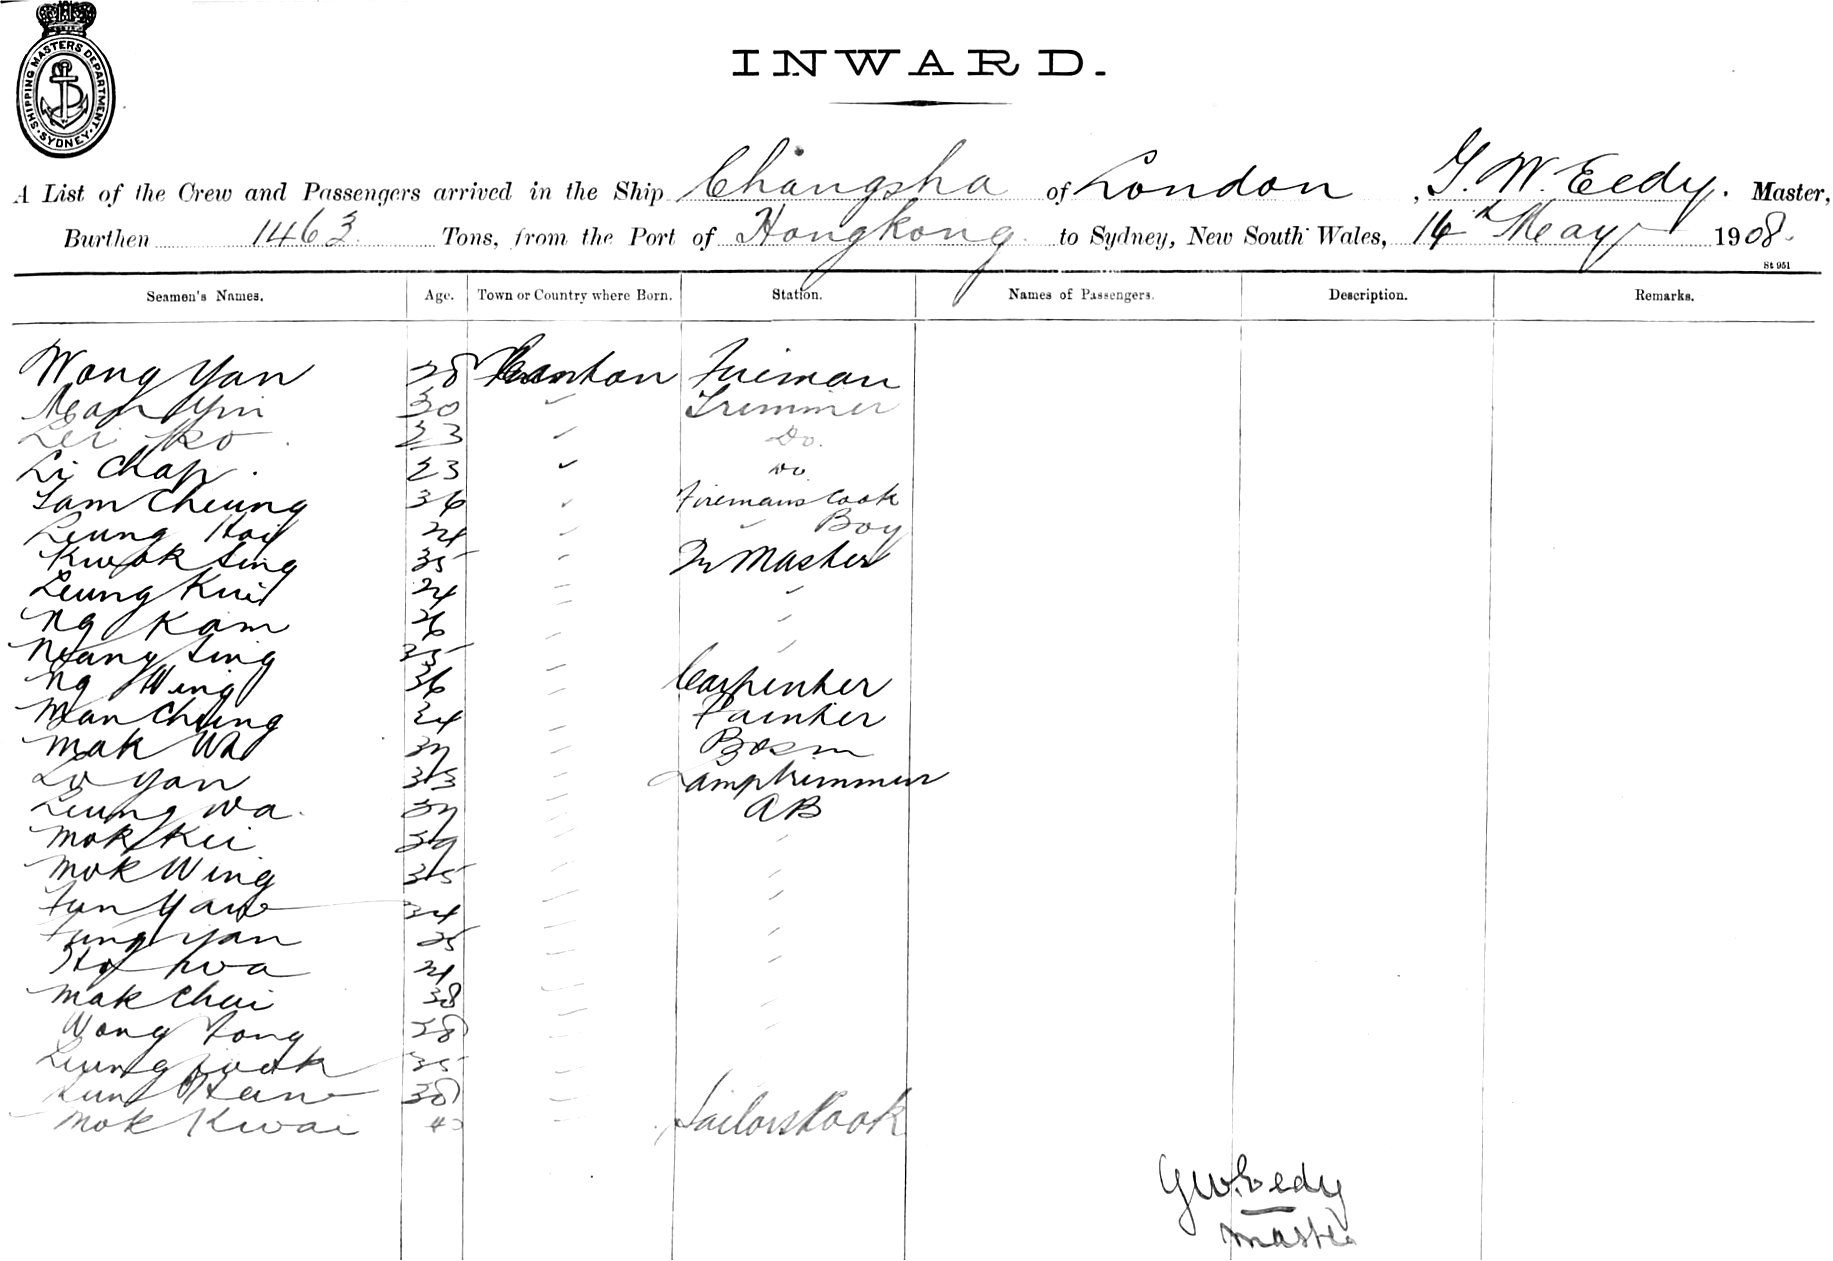 SHIPPING MASTERS DEPARTMENT
SYDNEY
INWARD.
A List of the Crew and Passengers arrived in the Ship Changsha of London, G. W. Eedy. Master,
Burthen 1463 Tons, from the Port of Hongkong to Sydney, New South Wales, 14th May 1908.
St 951
Seamen's Names. Age. Town or Country where Born. Station. Names of Passengers. Description. Remarks.
Wong Yan 28 Canton Fireman
Yin 30 " Trimmer
Lei Ko 23 " Do.
Li Chap. 23 " Do
Sam Cheung 36 " Firemans Cook
Leung Hoi 24 " " Boy
Kwok Sing 35 " Qr Master
Leung Kui 24 " "
Ng Kam 26 " "
Sing 35 " "
Ng Wing 36 " Carpenter
Man Chung 34 " Painter
Mak Wa 37 " Bosm
Lo Yan 33 " Lamptrimmer
Leung Wa. 37 " AB
Mok Kei 39 " "
Mok Wing 35 " "
34 " "
Fung Yan 25 " "
Ho 24 " "
Mak Chui 38 " "
Wong Fong 28 " "
Leung 35 " "
38 "
Mok Kwai 40 " Sailors Cook
G W. Eedy
Master